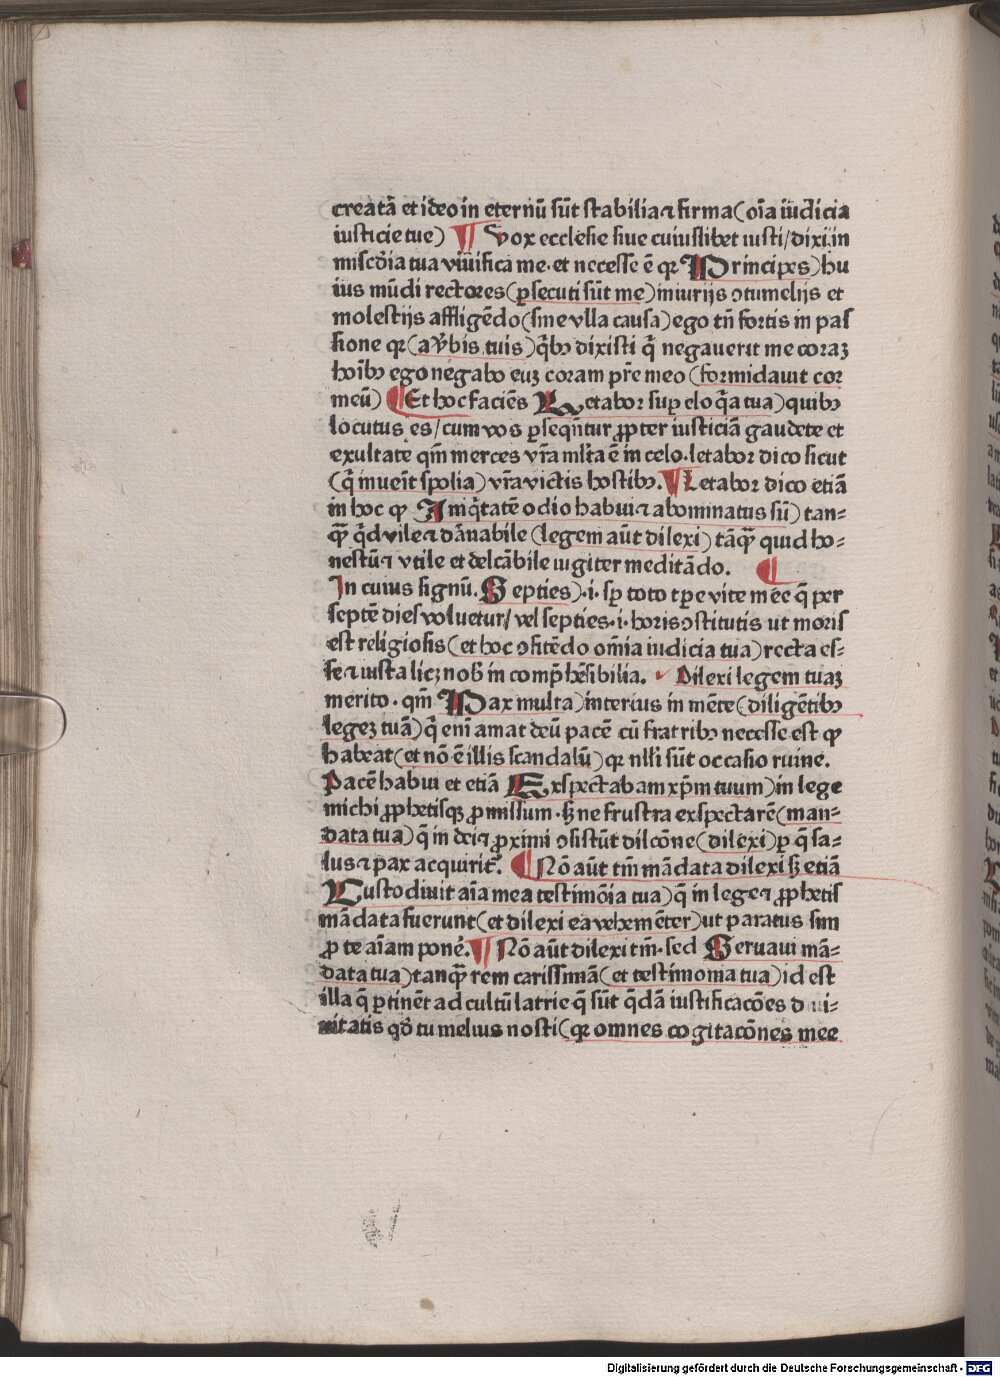 creatā et ideo in eternū sūt stabilia ⁊ firma (oīa iudicia
iusticie tue) ¶ Vox ecclesie siue cuiuslibet iusti / dixi in
misc̄dia tua viuifica me. et necesse ē qꝛ Principes) hu
ius mūdi rectores (ꝑsecuti sūt me) iniurijs ↄtumelijs et
molestijs affligēdo (sine vlla causa) ego tn̄ fortis in pas
sione qꝛ (a v̄bis tuis) q̄bꝰ dixisti q̄ negauerit me coraꝫ
hoībꝰ ego negabo euꝫ coram pr̄e meo (formidauit cor
meū) ¶ Et hoc faciēs Letabor suꝑ eloq̄a tua) quibꝰ
locutus es / cum vos ꝑseqn̄tur ꝓpter iusticiā gaudete et
exultate qm̄ merces vr̄a ml̄ta ē in celo. letabor dico sicut
(q̄ inueīt spolia) vr̄a victis hostibꝰ. ¶ Letabor dico etiā
in hoc ꝙ Iniq̄tatē odio habui ⁊ abominatus sū) tan-
qꝫ̄ q̄d vile ⁊ dānabile (legem aūt dilexi) tāqꝫ̄ quid ho-
nestū ⁊ vtile et delcābile iugiter meditādo. ¶
In cuius signū. Septies) .i. sꝑ toto tꝑe vite mēe q̄ per
septē dies voluetur / vel septies .i. horis ↄstitutis ut moris
est religiosis (et hoc ↄfitēdo om̄ia iudicia tua) recta es-
se ⁊ iusta licꝫ nob̄ in comp̄hēsibilia. Dilexi legem tuaꝫ
merito. qm̄ Pax multa) interius in mēte (diligētibꝰ
legeꝫ tuā) q̄ enī amat deū pacē cū fratribꝰ necesse est ꝙ
habeat (et nō ē illis scandalū) qꝛ nll̄i sūt occasio ruine.
Pacē habui et etiā Exspectabam xp̄m tuum) in lege
michi ꝓphetisqꝫ ꝓmissum. sꝫ ne frustra exspectarē (man-
data tua) q̄ in dei ⁊ ꝓximi ↄsistūt dilcōne (dilexi) ꝑ q̄ sa-
lus ⁊ pax acquirit᷑. ¶ Nō aūt tm̄ mādata dilexi sꝫ etiā
Custodiuit aīa mea testimōia tua) q̄ in lege ⁊ ꝓphetis
mādata fuerunt (et dilexi ea vehemēter) ut paratus sim
ꝓ te aīam ponē. ¶ Nō aūt dilexi tm̄. sed Seruaui mā-
data tua) tanqꝫ̄ rem carissimā (et testimonia tua) id est
illa q̄ ꝑtinēt ad cultū latrie q̄ sūt q̄dā iustificacōes d ui-
nitatis qō tu melius nosti (qꝛ omnes cogitacōnes mee
Digitalisierung gefördert durch die Deutsche Forschungsgemeinschaft - DFG